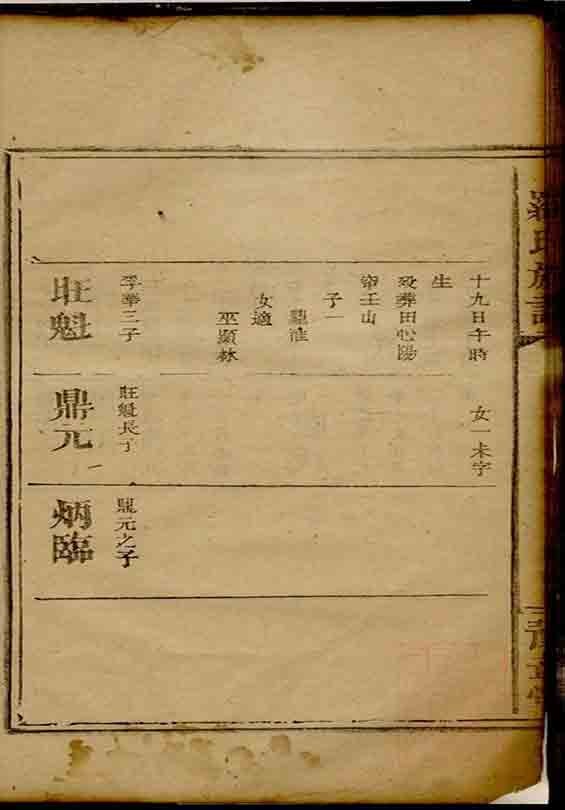 羅氏族譜
十九日午時
生
歿葬田心陽
壬山
子一
鼎淮
女適
巫顯林
女一未字
季華三子
旺魁
旺魁長子
鼎元
鼎元之子
炳臨